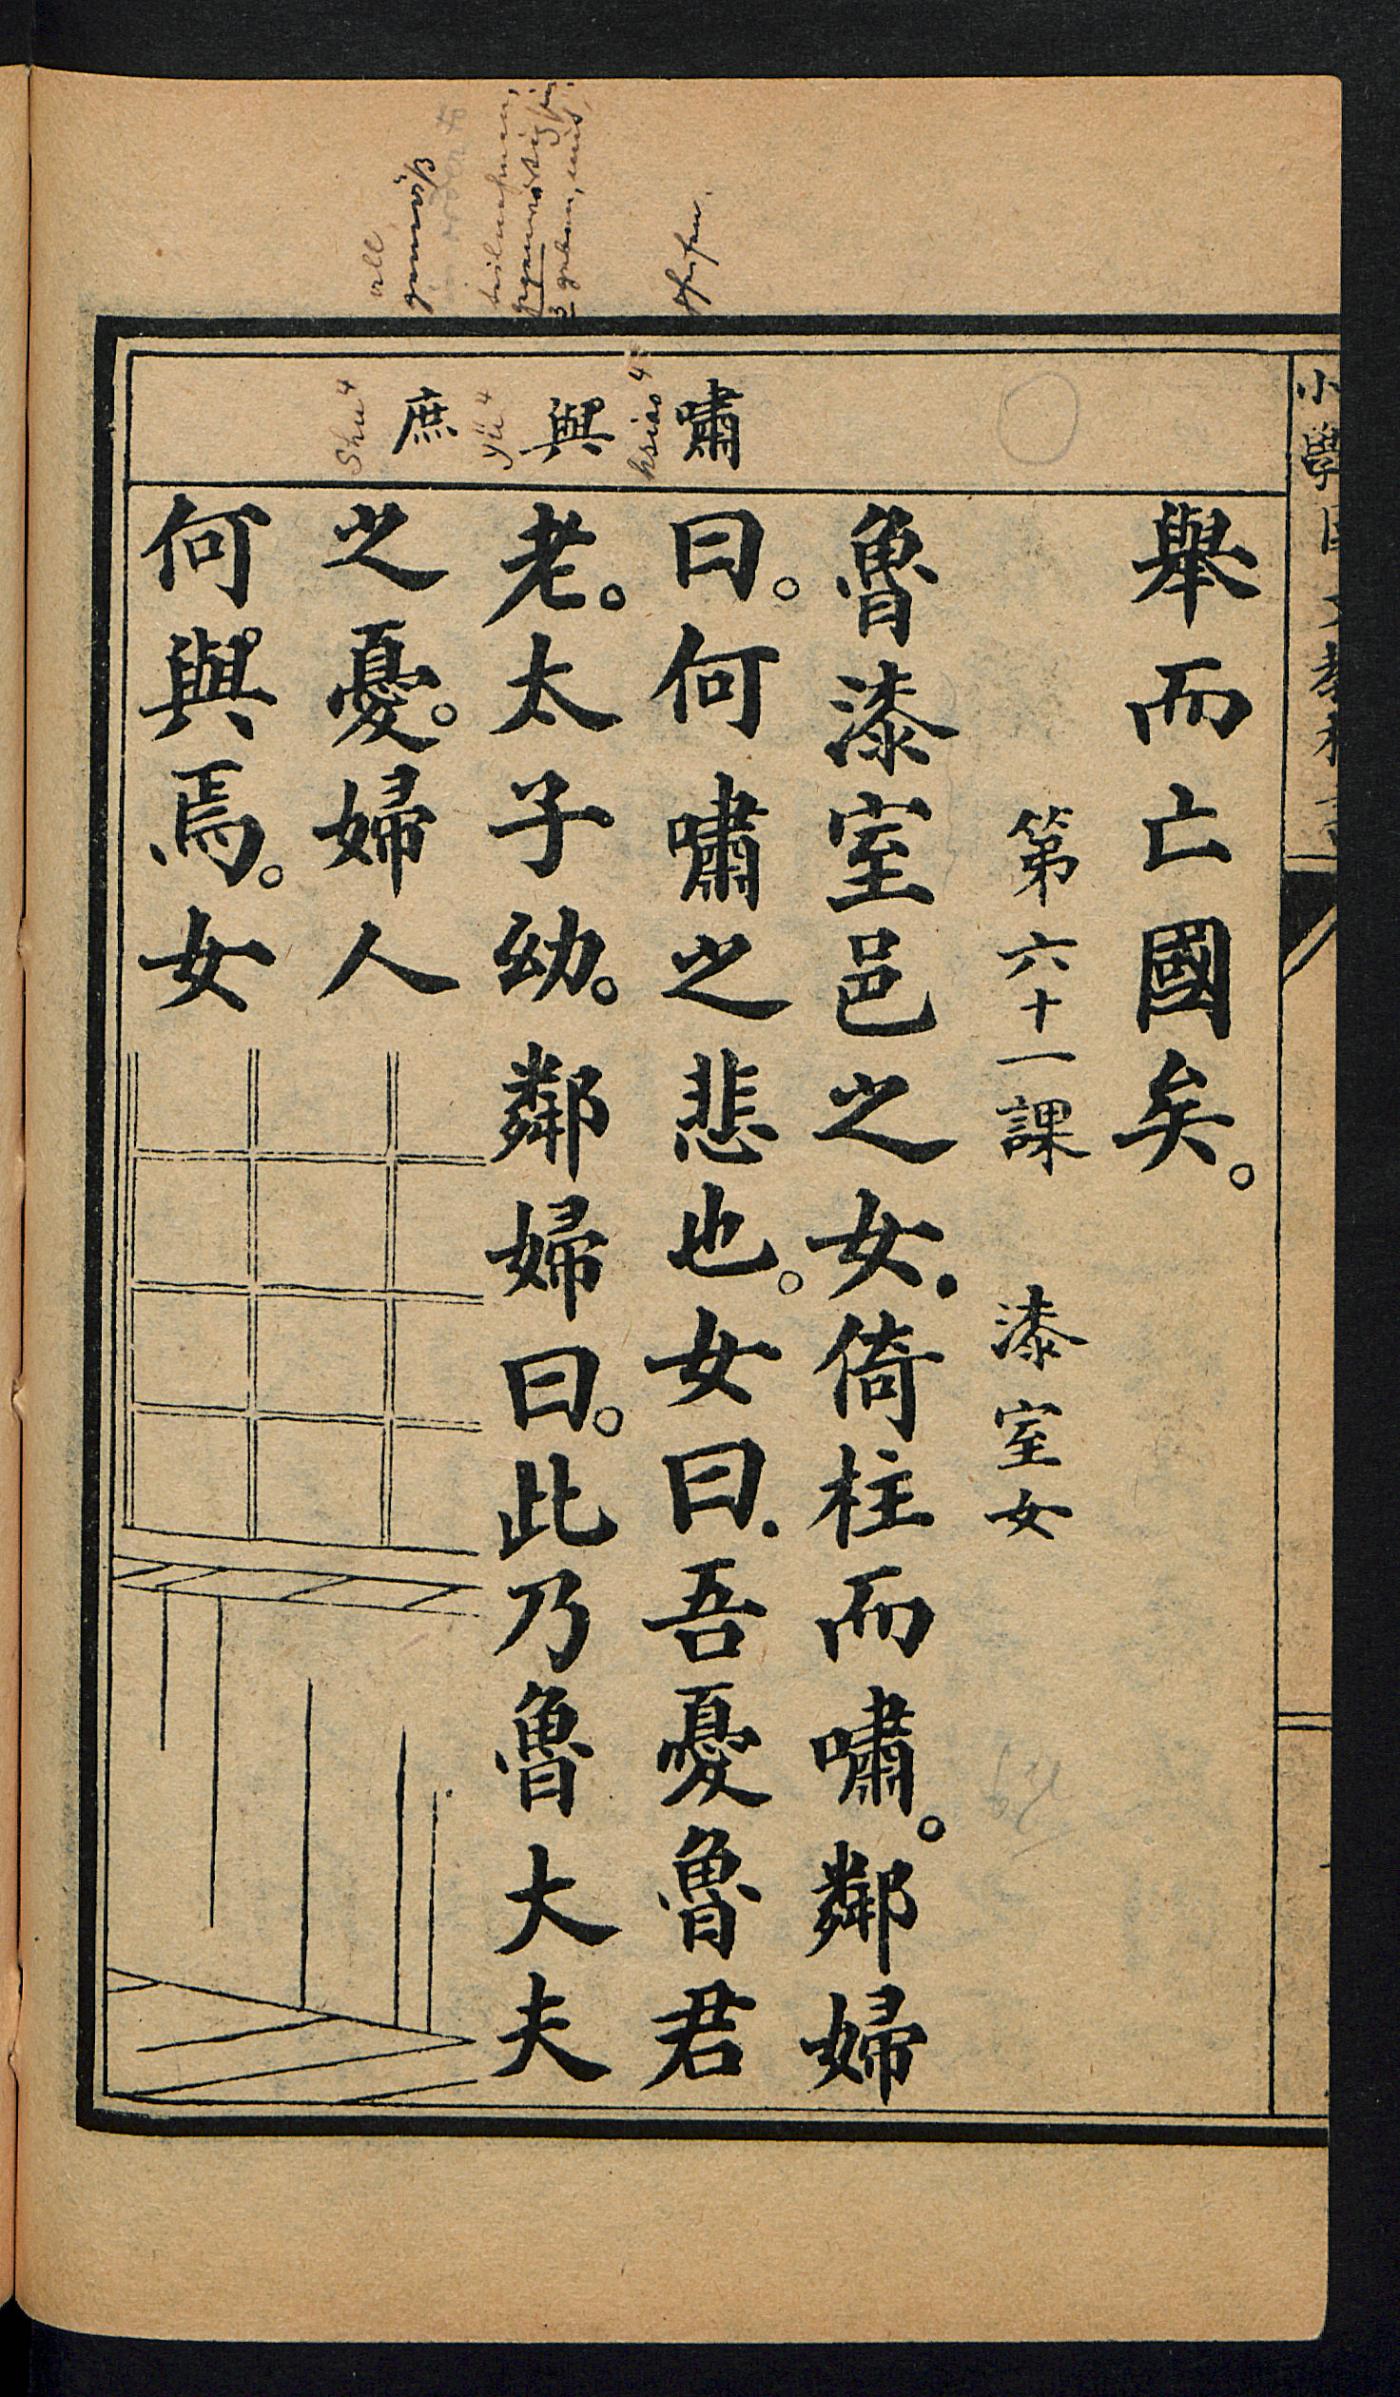 舉而亡國矣。
第六十一課　漆室女
魯漆室邑之女.倚柱而嘯。鄰婦
曰。何嘯之悲也。女曰.吾憂魯君
老。太子幼。鄰婦曰。此乃魯大夫
之憂。婦人
何與焉。女
嘯
與
庶
hsiao4
yü4
shu4
alle
小學國文教科書